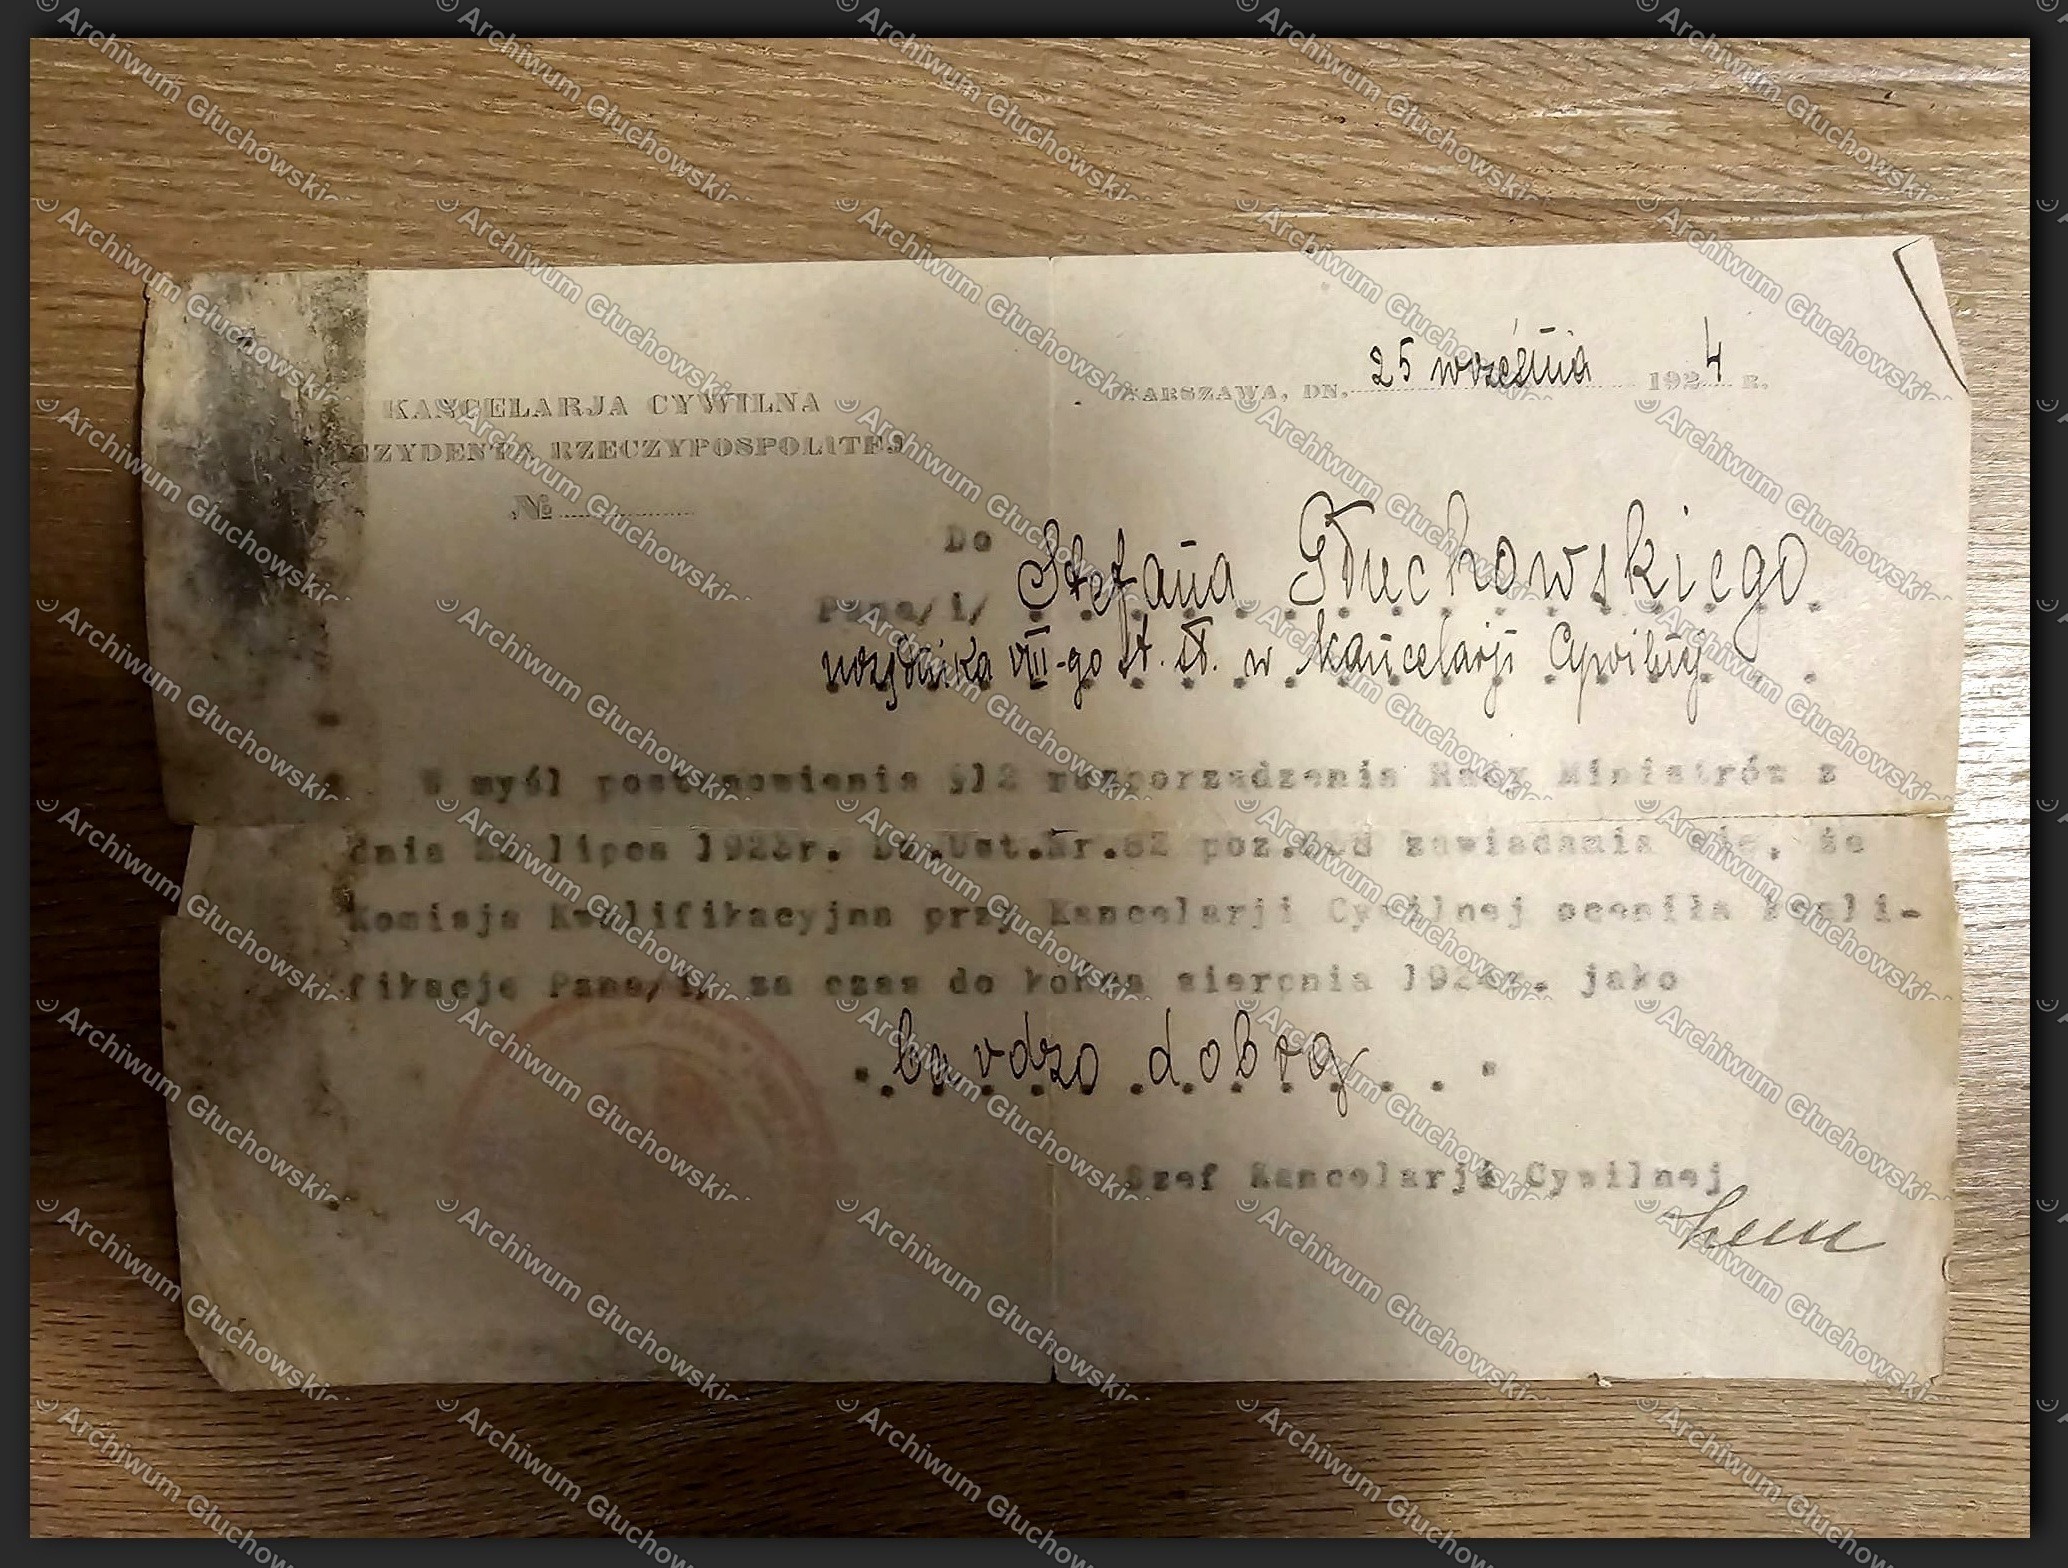 KANCELARJA CYWILNA
WARSZAWA, DN. 25 września 1924 r.
EZYDENTA RZECZYPOSPOLITEJ
№
Do
Pana/i/ Stefana Głuchowskiego
urzędnika VIII-go st. sł. w Kancelarji Cywilnej
W myśl postanowienia §12 rozporządzenia Rady Ministrów z
dnia lipca Dz.Ust.Nr.82 poz. zawiadamia się, że
Komisja Kwalifikacyjna przy Kancelarji Cywilnej oceniła kwali-
fikacje Pana/i/ za czas do końca sierpnia 1924r. jako
bardzo dobrą
Szef Kancelarji Cywilnej
© Archiwum Głuchowskic